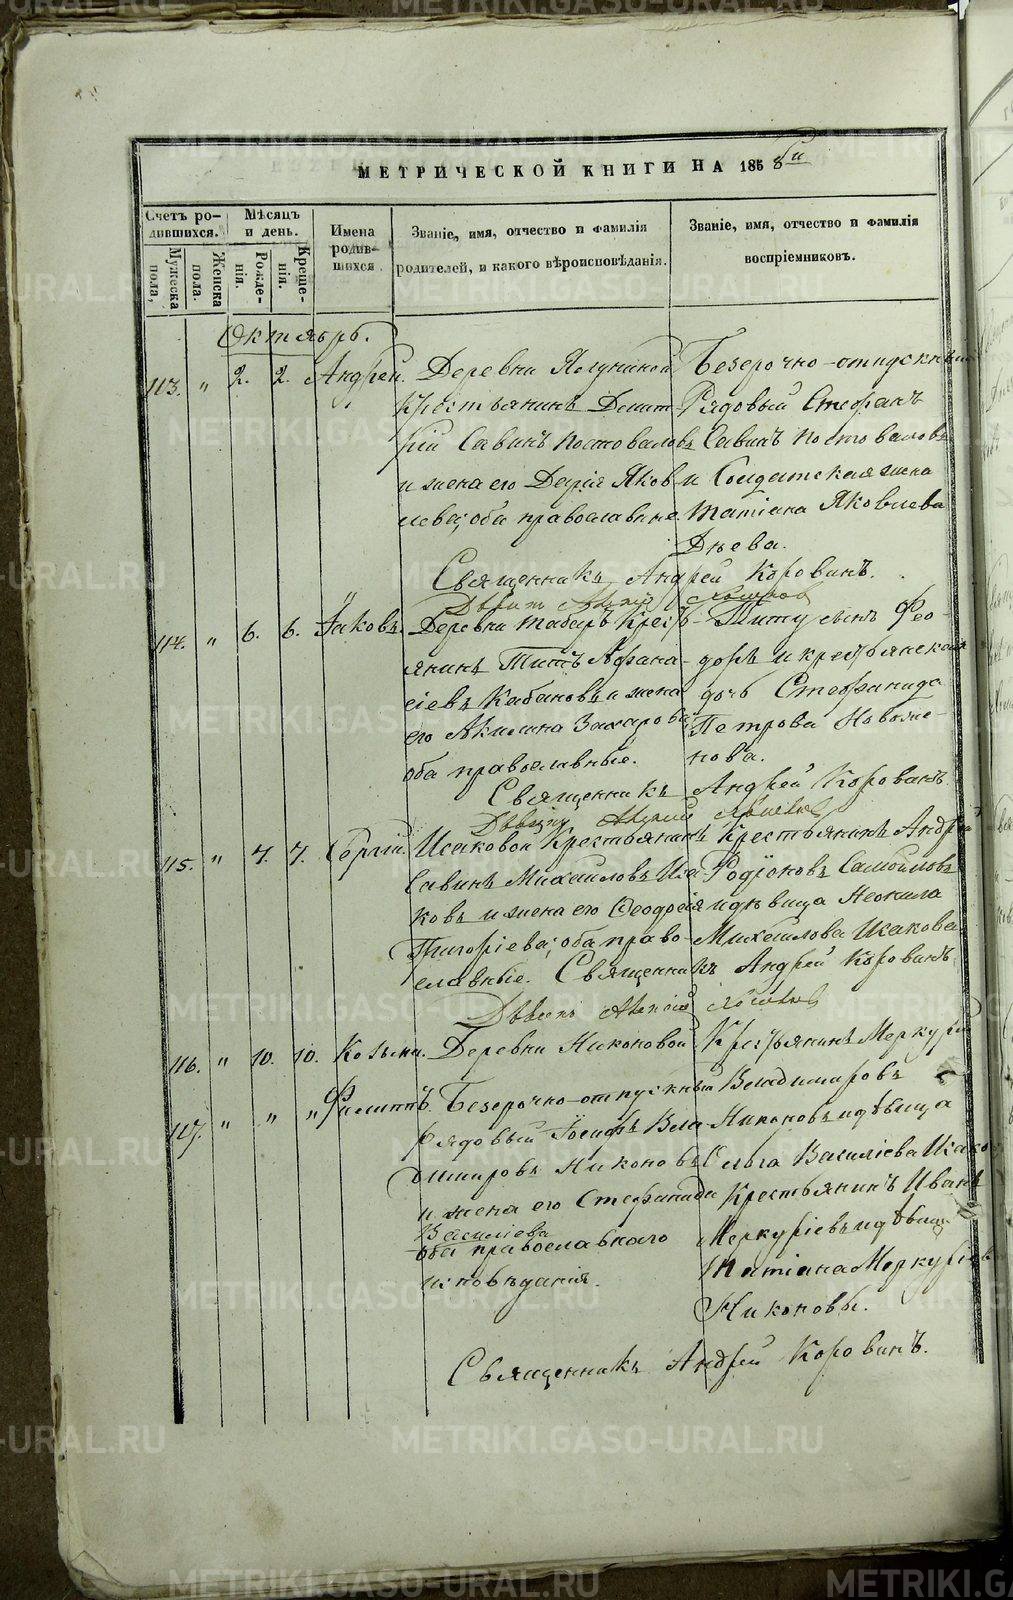 МЕТРИЧЕСКОЙ КНИГИ НА 1858й
Счетъ ро-
дившихся.
Мужеска
пола,
Женска
пола.
Мѣсяцъ
и день.
Рожде-
нія.
Креще-
нія.
Имена
родив-
шихся
Званіе, имя, отчество и фамилія
родителей, и какого вѣроисповѣданія.
Званіе, имя, отчество и фамилія
воспріемниковъ.
Октябрь.
113. " 2. 2. Андрей.
Деревни Ялуниной
крестьянинъ Димит-
рій Савинъ Постоваловъ
и жена его Дарія Яков-
лева; оба православные.
Безсрочно-отпускный
Рядовый Стефанъ
Савинъ Постоваловъ
и Солдатская жена
Татіана Яковлева
Днева.
Священникъ Андрей Коровинъ.
114. " 6. 6. Іаковъ.
Деревни Табаръ Крест-
янинъ Титъ Афана-
сіевъ Кабановъ и жена
его Акилина Захарова
оба православные.
Титу сынъ Фео-
доръ и крестьянская
дочь Стефанида
Петрова Новожи-
лова.
Священникъ Андрей Коровинъ
115. " 7. 7. Сергій
Исаковой Крестьянинъ
Савинъ Михаиловъ Иса-
ковъ и жена его Феодосія
Григоріева; оба право-
славные.
Крестьянинъ Андрей
Родіоновъ Самойловъ
и дѣвица Неонила
Михаилова Исакова.
Священникъ Андрей Коровинъ
116. " 10. 10. Козьма.
117. " " " Филиппъ.
Деревни Никоновой
Безсрочно-отпускный
рядовый Іосифъ Вла-
димировъ Никоновъ
и жена его Стефанида
Васильева
оба православнаго
исповѣданія.
Крестьянинъ Меркурій
Владимировъ
Никоновъ и дѣвица
Ольга Василіева Исако
Крестьянинъ Иванъ
Меркуріевъ и дѣвица
Татіана Меркуріева
Никоновы.
Священникъ Андрей Коровинъ.
METRIKI.GASO-URAL.RU